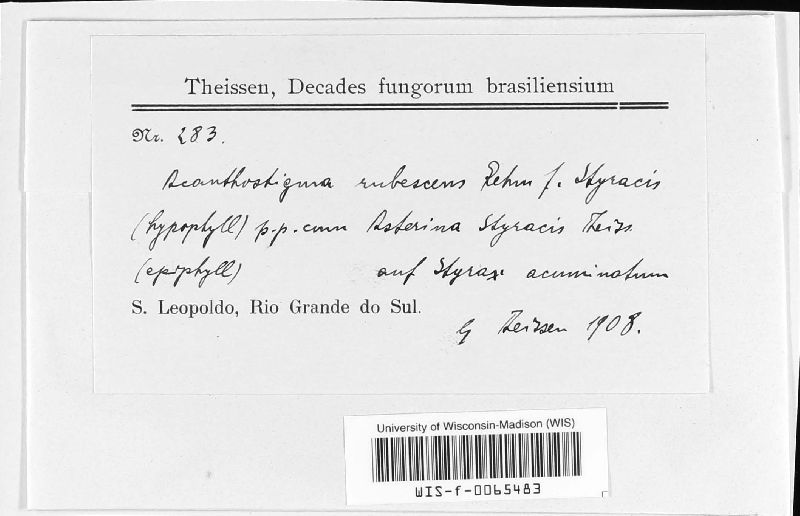 Theissen, Decades fungorum brasiliensium
Nr. 283.
Acanthostigma rubescens Rehm f. Styracis
(hypophyll) p.p. cum Asterina Styracis Theiss
(epiphyll) auf Styrax acuminatum
S. Leopoldo, Rio Grande do Sul.
Theissen 1908.
University of Wisconsin-Madison (WIS)
WIS-f-0065483